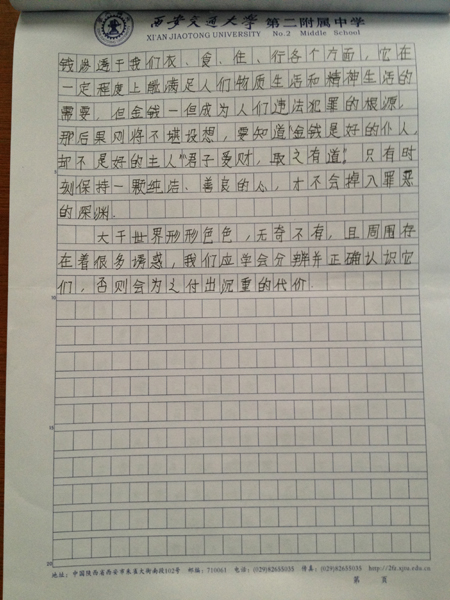 西安交通大学 第二附属中学
XI'AN JIAOTONG UNIVERSITY No.2 Middle School
钱渗透于我们衣、食、住、行各个方面，它在
一定程度上能满足人们物质生活和精神生活的
需要，但金钱一但成为人们违法犯罪的根源，
那后果则将不堪设想，要知道“金钱是好的仆人，
却不是好的主人”“君子爱财，取之有道”。只有时
刻保持一颗纯洁、善良的心，才不会掉入罪恶
的深渊．
大千世界形形色色，无奇不有，且周围存
在着很多诱惑，我们应学会分辨并正确认识它
们，否则会为之付出沉重的代价．
5
10
15
20
地址：中国陕西省西安市朱雀大街南段102号 邮编：710061 电话：(029)82655035 传真：(029)82655035 http://2fz.xjtu.edu.cn
第 页